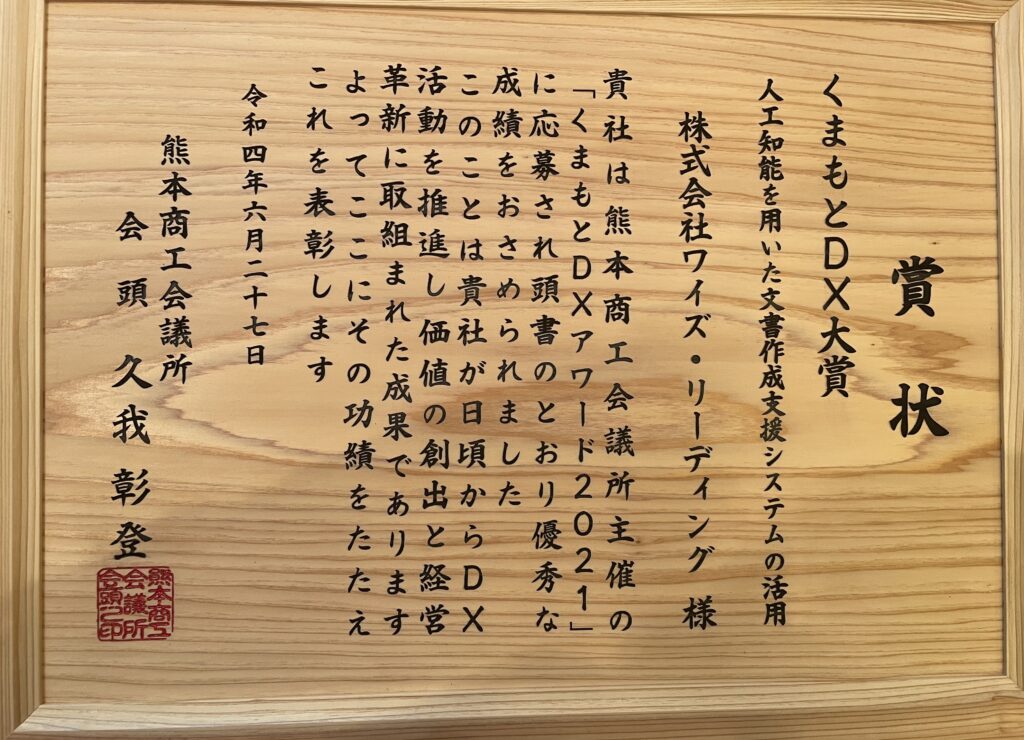 賞状
くまもとDX大賞
人工知能を用いた文書作成支援システムの活用
株式会社ワイズ・リーディング 様
貴社は熊本商工会議所主催の
「くまもとDXアワード2021」
に応募され頭書のとおり優秀な
成績をおさめられました
このことは貴社が日頃からDX
活動を推進し価値の創出と経営
革新に取組まれた成果であります
よってここにその功績をたたえ
これを表彰します
令和四年六月二十七日
熊本商工会議所
会頭 久我彰登
熊本商工
会議所
会頭之印